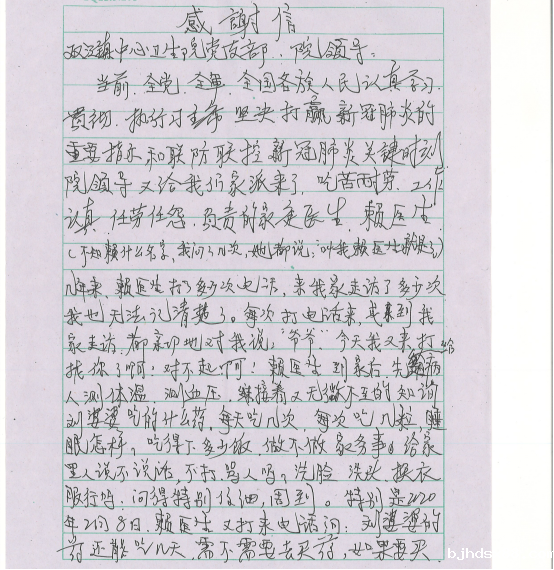 感謝信
双江镇中心卫生院党支部、院领导:
当前,全党、全军、全国各族人民认真学习、
贯彻、执行习主席坚决打赢新冠肺炎的
重要指示和联防联控新冠肺炎关键时刻
院领导又给我们家派来了,吃苦耐劳、工作
认真、任劳任怨、负责的家庭医生,赖医生
(不知赖什么名字,我问了几次,她都说,叫我赖医生就是了)
几年来,赖医生打了多少次电话,来我家走访了多少次
我也无法记清楚了。每次打电话来,或来到我
家走访,都亲切地对我说:"爷爷",今天我又来打
找你了啊!对不起啊!赖医生到家后,先给病
人测体温、测血压、接着又无微不至的知询
刘婆婆吃的什么药,每天吃几次,每次吃几粒,睡
眠怎样,吃得下多少饭,做不做家务事。给家
里人说不说话,不打、骂人吗,洗脸、洗头、换衣
服行吗,问得特别仔细,周到。特别是2020
年2月8日,赖医生又打来电话问:刘婆婆的
药还能吃几天,需不需要去买药,如果要买